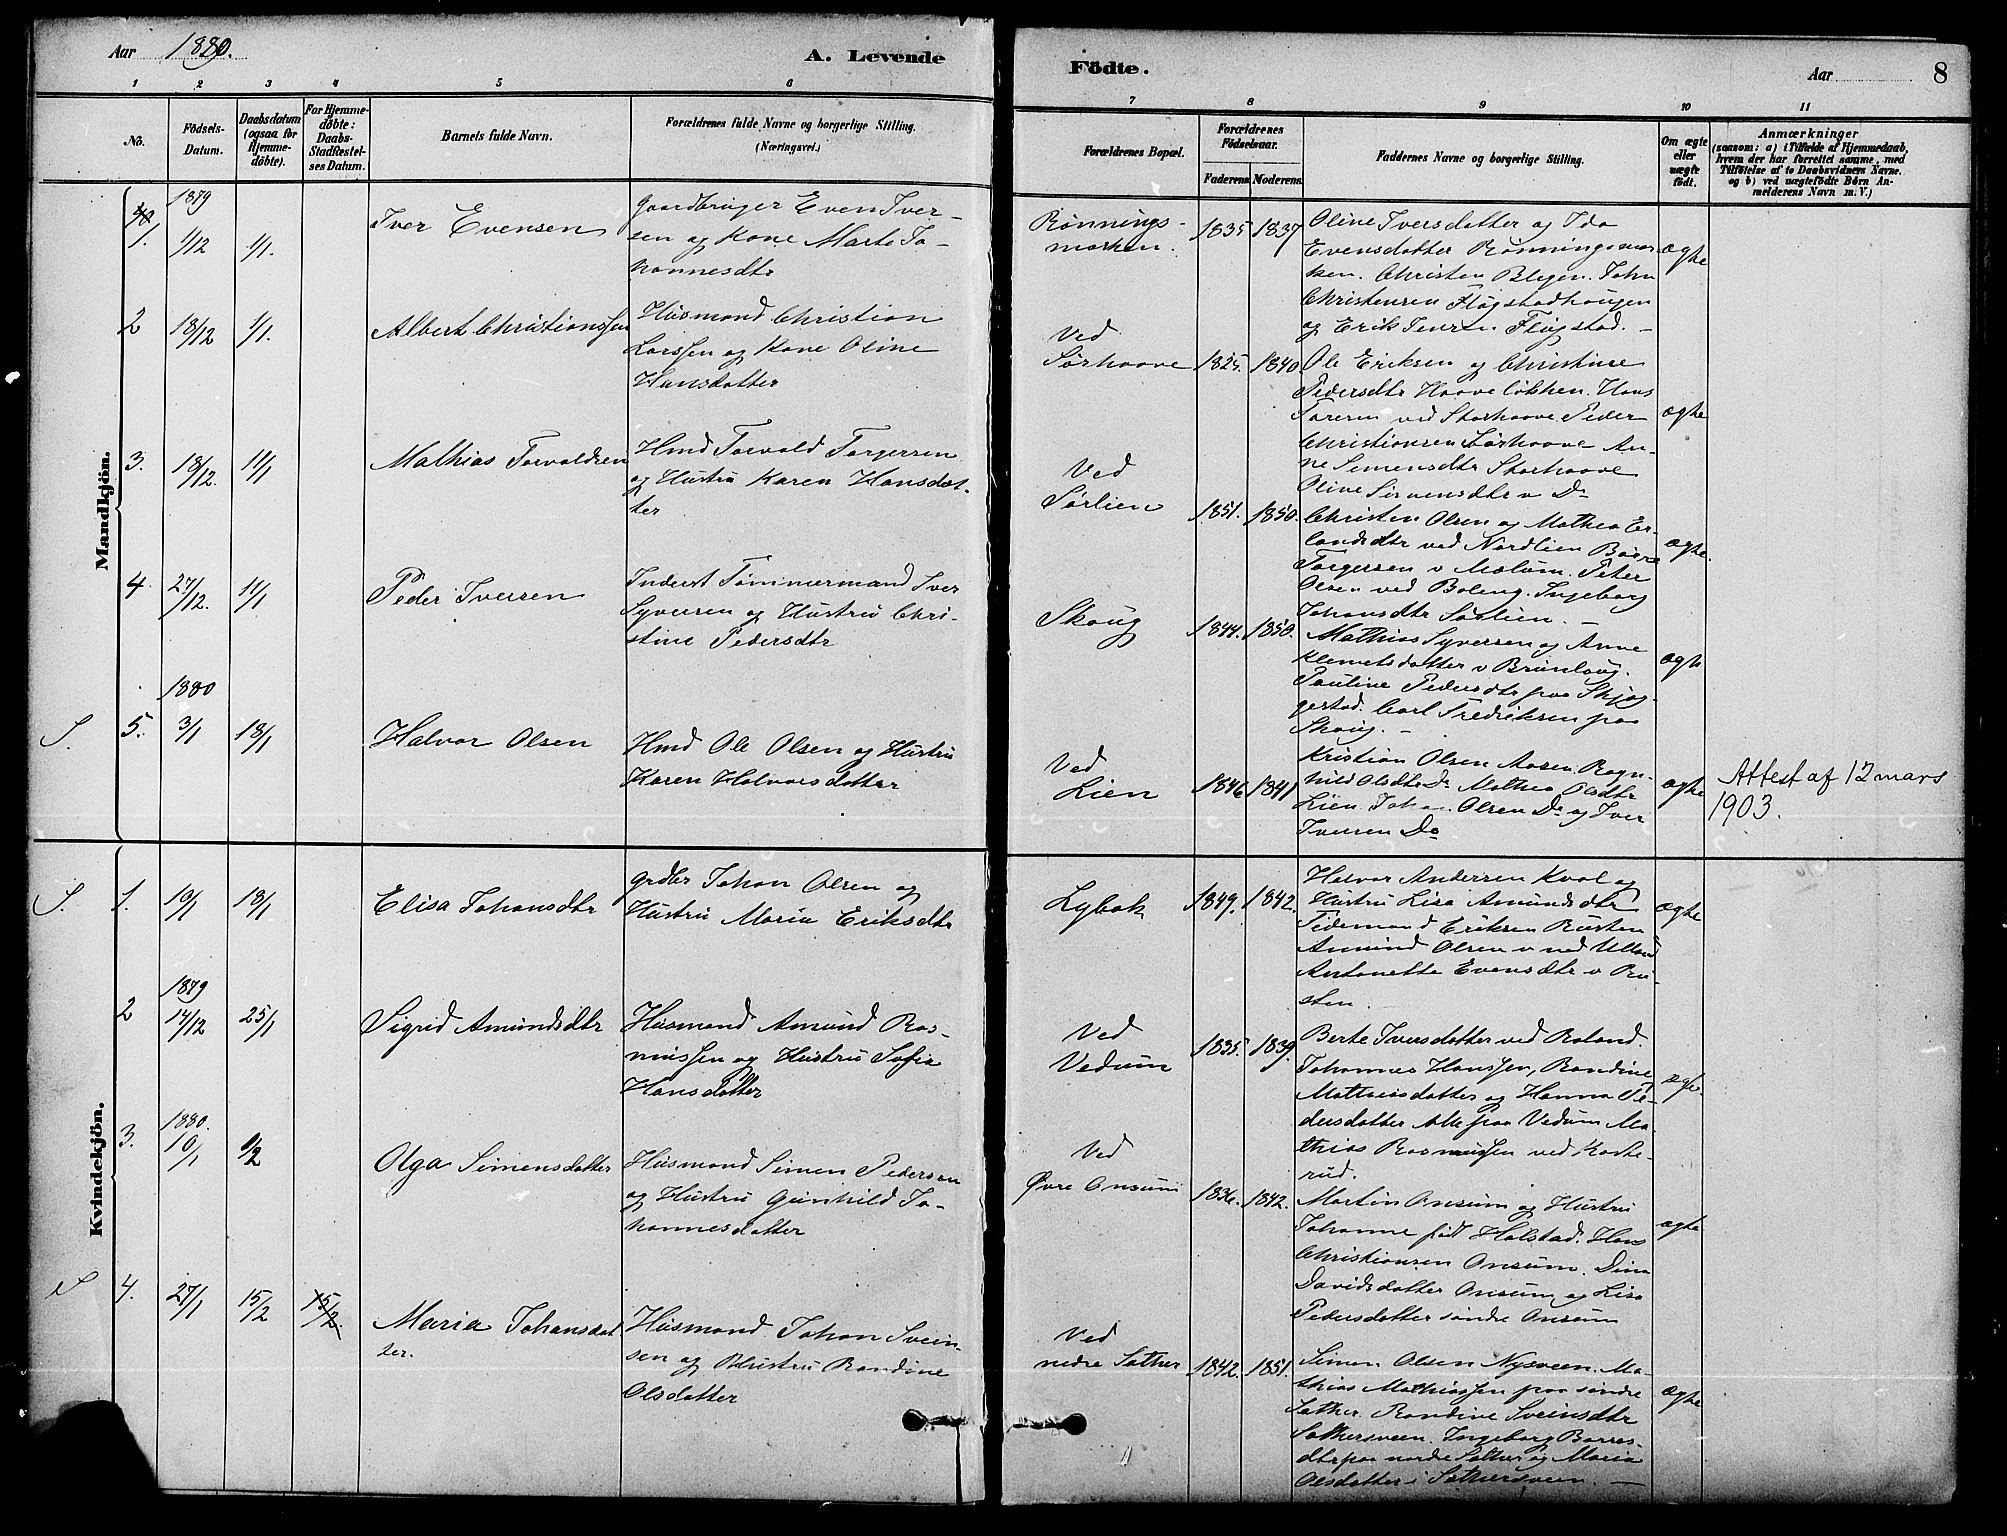 Aar 1880.
A. Levende
Födte.
Aar
8
1 2 3 4 5 6 7 8 9 10 11
No.
Födsels-
Datum.
Daabsdatum
(ogsaa for
Hjemme-
döbte).
For Hjemme-
döbte:
Daabs-
Stadfæstel-
ses Datum.
Barnets fulde Navn.
Forældrenes fulde Navne og borgerlige Stilling.
(Næringsvei.)
Forældrenes Bopæl.
Forældrenes
Födselsaar.
Faderens. Moderens.
Faddernes Navne og borgerlige Stilling.
Om ægte
eller
uægte
født.
Anmærkninger
(saasom: a) i Tilfælde af Hjemmedaab,
hvem der har forrettet samme, med
Tilföielse af to Daabsvidners Navne.
og b) ved uægtefödte Börn An-
melderens Navn m. V.)
Mandkjön.
1879
1.
1/12
1/1.
Iver Evensen
Gaardbruger Even Iver-
sen og Kone Marte Jo-
hannesdtr
Rønnings-
marken.
1835
1837
Oline Iversdatter og Ida
Evensdatter Rønningsmar-
ken. Christen Blegen. John
Christensen Flugstadhaugen
og Erik Iversen Flugstad. —
ægte
2
18/12
1/1.
Albert Christianssen
Husmand Christian
Larssen og Kone Oline
Hansdatter
Ved
Sørhaave
1825.
1840.
Ole Eriksen og Christine
Pedersdtr Haaveløkken. Hans
Taresen ved Storhaave Peder
Christiansen Sørhaave An-
ne Simensdtr Storhaave
Oline Simensdtr v Do
ægte
3.
18/12
11/1
Mathias Torvaldsen
Hmd Torvald Torgersen
og Hustru Karen Hansdat-
ter
Ved
Sørlien
1851.
1850.
Christen Olsen og Mathea Er-
landsdtr ved Nordlien
Torgersen v Mælum. Peter
Olsen ved Boleng. Ingeborg
Johansdtr Sørlien. —
ægte.
4.
27/12.
11/1
Peder Iversen
Inderst Tømmermand Iver
Syversen og Hustru Chri-
stine Pedersdtr
Skoug
1844.
1850.
Mathias Syversen og Anne
Klemetsdatter v Brunlaug.
Pauline Pedersdtr paa Skjæg-
gestad. Carl Fredriksen paa
Skoug. —
ægte
1880
S.
5.
3/1
18/1
Halvor Olsen
Hmd Ole Olsen og Hustru
Karen Halvorsdatter
Ved
Lien
1846
1841
Kristian Olsen Mosen. Ragn-
hild Olsdtr Do Mathea Olsdtr
Lien. Johan Olsen Do og Iver
Iversen Do
ægte
Attest af 12 mars
1903.
Kvindekjön.
S.
1.
10/1
18/1
Elisa Johansdtr
Grdbr Johan Olsen og
Hustru Maria Eriksdtr
Lybæk
1849.
1842.
Halvor Andersen Kval og
Hustru Lisa Amundsdtr
Tidemand Eriksen Rusten
Amund Olsen v
Antonette Evensdtr v Ru-
sten.
ægte
1879
2
14/12
25/1
Sigrid Amundsdtr
Husmand Amund Ras-
mussen og Hustru Sofie
Hansdatter
Ved
Vedum
1835.
1839.
Berte Iversdatter ved Roland.
Johannes Hanssen, Randine
Mathisdatter og Hanna Pe-
dersdatter Alle paa Vedum Ma-
thias Rasmussen ved Korte-
rud.
ægte.
1880.
3.
10/1
1/2
Olga Simensdatter
Husmand Simen Pedersen
og Hustru Gunhild Jo-
hannesdatter
Ved
Øvre Onsum
1836.
1842.
Martin Onsum og Hustru
Johanne født Holstad. Hans
Christiansen Onsum. Dina
Davidsdatter Onsum og Lisa
Pedersdatter søndre Onsum
ægte
S
4.
27/1
15/2
15/2.
Maria Johansdat
ter.
Husmand Johan Svein-
sen og Hustru Randine
Olsdatter
Ved
nedre Sother
1842.
1851.
Simen Olsen Nysveen. Ma-
thias Mathiassen paa søndre
Sother. Randine Sveinsdtr
Sothersveen. Ingeborg Borres-
dtr paa nordre Sother og Maria
Olsdatter i Sothersveen. —
ægte